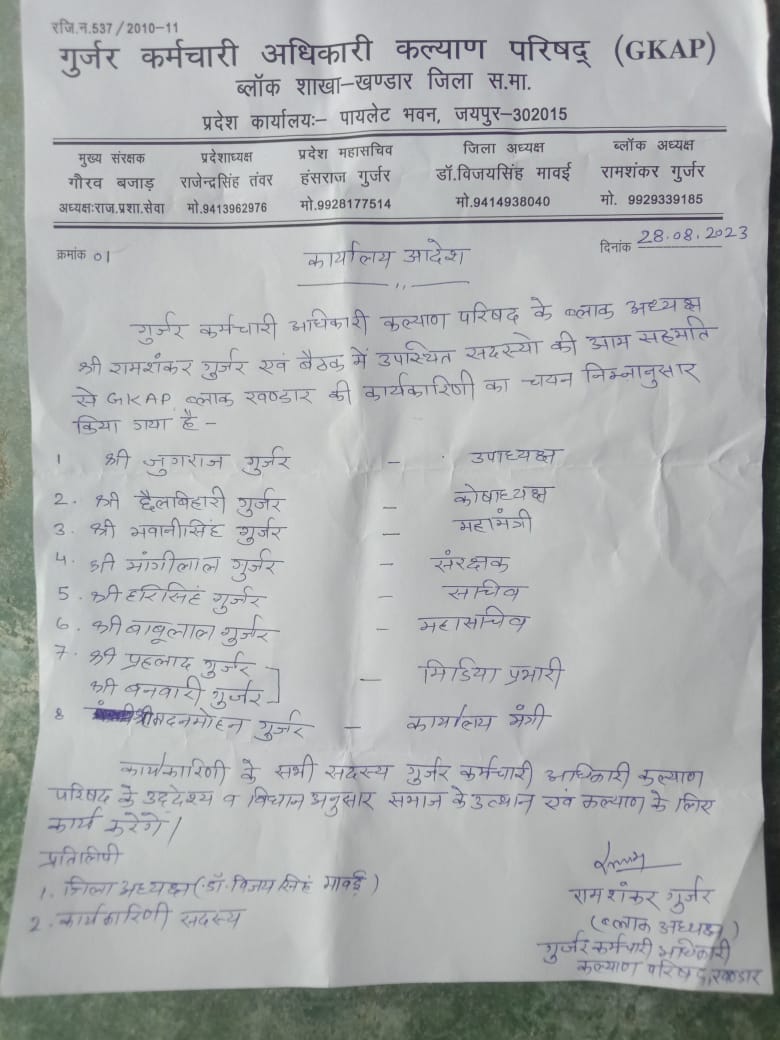 रजि.न.537/2010-11
गुर्जर कर्मचारी अधिकारी कल्याण परिषद् (GKAP)
ब्लॉक शाखा-खण्डार जिला स.मा.
प्रदेश कार्यालयः- पायलेट भवन, जयपुर-302015
मुख्य संरक्षक प्रदेशाध्यक्ष प्रदेश महासचिव जिला अध्यक्ष ब्लॉक अध्यक्ष
गौरव बजाड़ राजेन्द्रसिंह तंवर हंसराज गुर्जर डॉ.विजयसिंह मावई रामशंकर गुर्जर
अध्यक्षःराज.प्रशा.सेवा मो.9413962976 मो.9928177514 मो.9414938040 मो. 9929339185
क्रमांक 01 कार्यालय आदेश दिनांक 28.08.2023
गुर्जर कर्मचारी अधिकारी कल्याण परिषद के ब्लाक अध्यक्ष
श्री रामशंकर गुर्जर एवं बैठक में उपस्थित सदस्यो की आम सहमति
से GKAP ब्लाक खण्डार की कार्यकारिणी का चयन निम्नानुसार
किया गया है -
1 श्री जुगराज गुर्जर - उपाध्यक्ष
2. श्री छैलबिहारी गुर्जर - कोषाध्यक्ष
3. श्री भवानीसिंह गुर्जर - महामंत्री
4. श्री मांगीलाल गुर्जर - संरक्षक
5. श्री हरिसिंह गुर्जर - सचिव
6. श्री बाबूलाल गुर्जर - महासचिव
7. श्री प्रहलाद गुर्जर
श्री बनवारी गुर्जर - मिडिया प्रभारी
8 श्री मदनमोहन गुर्जर - कार्यालय मंत्री
कार्यकारिणी के सभी सदस्य गुर्जर कर्मचारी अधिकारी कल्याण
परिषद के उददेश्य व विधान अनुसार समाज के उत्थान एवं कल्याण के लिए
कार्य करेगें।
प्रतिलिपी
1. जिला अध्यक्ष (डॉ. विजय सिंह मावई)
2. कार्यकारिणी सदस्य
रामशंकर गुर्जर
(ब्लाक अध्यक्ष)
गुर्जर कर्मचारी अधिकारी
कल्याण परिषद, खण्डार